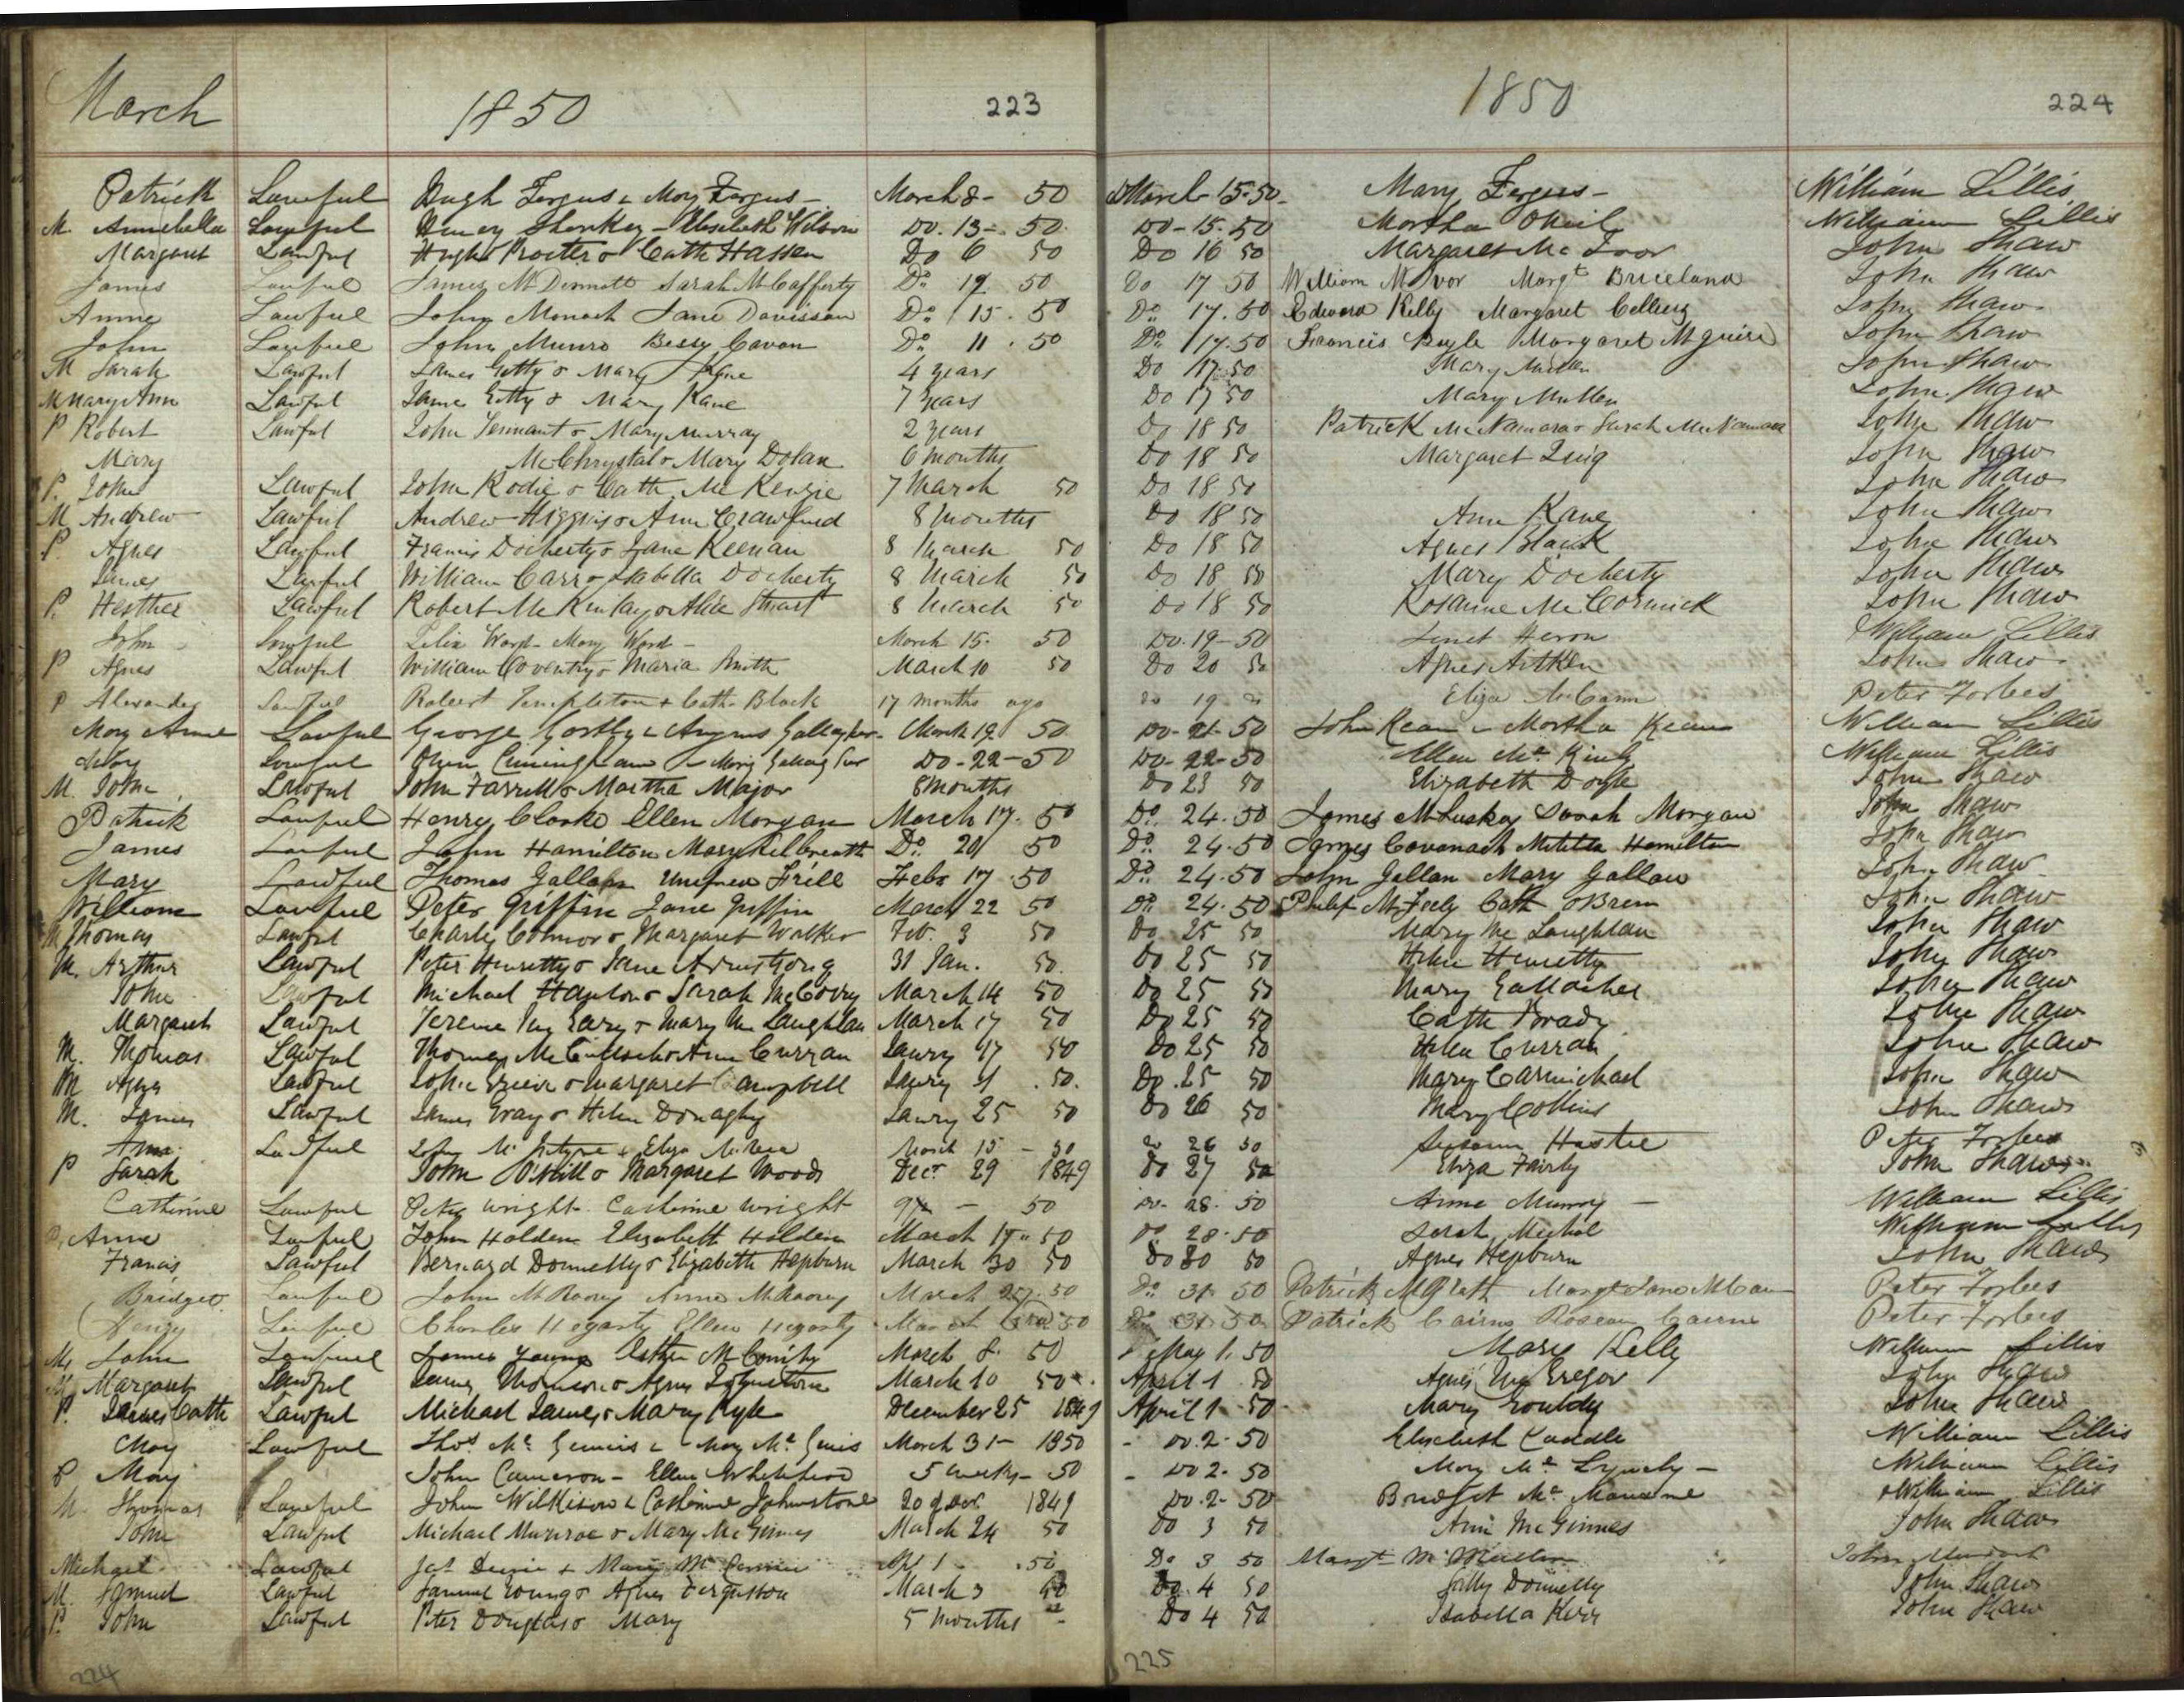 March 1850 223 1850 224
Patrick Lawful Hugh Fergus & Mary Fergus - March 8 - 50 March 15 - 50 Mary Fergus - William Lillis
M. Annabella Lawful Henry Sharkey - Elisabeth Wilson Do. 13 - 50 Do - 15 - 50 Martha ONeil William Lillis
Margaret Lawful Hugh Procter & Cath Hassen Do 6 50 Do 16 50 Margaret Mc Ivor John Shaw
James Lawful James McDermott Sarah McCafferty Do 12 50 Do 17 50 William McIvor Margt Briceland John Shaw
Anne Lawful John Monach Jane Davisson Do 15 . 50 Do 17 . 50 Edward Kelly Margaret John Shaw
John Lawful John Munro Bessy Cavan Do 11 . 50 Do 17 . 50 Francis Boyle Margaret McGuire John Shaw
M Sarah Lawful James Getty & Mary Kane 4 years Do 17 50 Mary Mullen John Shaw
M Mary Ann Lawful James Getty & Mary Kane 7 years Do 17 50 Mary Mullen John Shaw
P Robert Lawful John Tennant & Mary Murray 2 years Do 18 50 Patrick McNamara & Sarah McNamara John Shaw
Mary McChrystal & Mary Dolan 6 months Do 18 50 Margaret Quig John Shaw
P. John Lawful John Rodie & Cath McKenzie 7 March 50 Do 18 50 John Shaw
M. Andrew Lawful Andrew Higgins & Ann Crawford 8 months Do 18 50 Ann Kane John Shaw
P. Agnes Lawful Francis Docherty & Jane Keenan 8 March 50 Do 18 50 Agnes Black John Shaw
James Lawful William Carr & Isabella Docherty 8 March 50 Do 18 50 Mary Docherty John Shaw
P. Hesther Lawful Robert McKinlay & Alice Stuart 8 March 50 Do 18 50 Rosanne McCormick John Shaw
John Lawful Felix Ward - Mary Ward - March 15 - 50 Do. 19 - 50 Janet Heron William Lillis
P Agnes Lawful William Coventry & Maria Smith March 10 50 Do 20 50 Agnes Aitken John Shaw
P Alexander Lawful Robert Templeton & Cath. Black 17 months ago Do 19 Eliza McCann Peter Forbes
Mary Anne Lawful George Gallagher March 19 50 Do - 21 - 50 John Kean & Martha Kean William Lillis
Mary Lawful Owen Cuningham & Mary Do - 22 - 50 Do - 22 - 50 Ellen Mc William Lillis
M. John Lawful John Farrell & Martha Major 8 months Do 23 50 Elizabeth Doyle John Shaw
Patrick Lawful Henry Clarke Ellen Morgan March 17 . 50 Do 24 . 50 James McLuskey Sarah Morgan John Shaw
James Lawful John Hamilton Mary Kilbreath Do 20 50 Do 24 . 50 James Cavanach Matilda Hamilton John Shaw
Mary Lawful Thomas Gallan Friell Feb 17 . 50 Do 24 . 50 John Gallan Mary Gallan John Shaw
William Lawful Peter Griffin Jane Griffin March 22 50 Do 24 . 50 Philip McFeely Cath OBrien John Shaw
M Thomas Lawful Charles Connor & Margaret Walker Feb. 3 50 Do 25 50 Mary Mc Laughlan John Shaw
M. Arthur Lawful Peter Henretty & Jane Armstrong 31 Jan. 50. Do 25 50 Helen Henretty John Shaw
John Lawful Michael Hanlon & Sarah McGovry March 14 50 Do 25 50 Mary Gallacher John Shaw
Margaret Lawful & Mary Mc Laughlan March 17 50 Do 25 50 Cath Brady John Shaw
M. Thomas Lawful Thomas McCulloch & Ann Curran Janry 17 50 Do 25 50 Helen Curran John Shaw
M Agnes Lawful John Grieve & Margaret Campbell Janry 31 . 50. Do . 25 50 Mary Carmichael John Shaw
M. James Lawful James Gray & Helen Donaghy Janry 25 50 Do 26 50 Mary Collins John Shaw
Anna Lawful John McIntyre & Eliza March 15 - 50 Do 26 50 Susann Hastie Peter Forbes
P Sarah John O'Neill & Margaret Woods Decr 29 1849 Do 27 50 Eliza Fairly John Shaw
Catherine Lawful Peter Wright - Catherine Wright - 50 Do - 28 - 50 Anne Murray - William Lillis
P. Anne Lawful John Holden Elizabeth Holden March 17 " 50 Do 28 - 50 Sarah Michal William Lillis
Francis Lawful Bernard Donnelly & Elizabeth Hepburn March 30 50 Do 30 50 Agnes Hepburn John Shaw
Bridget Lawful John McRoory Anne McRoory March 27 . 50 Do 31 50 Patrick McGrath Margt Jane McCan Peter Forbes
Henry Lawful Charles Hegarty Ellen Hegarty March 50 Do 31 50 Patrick Cairns Rosean Cairns Peter Forbes
M. John Lawful James Young Esther March 8 . 50 May 1. 50 Mary Kelly William Lillis
M Margaret Lawful James Thomson & Agnes Johnstone March 10 50 April 1 50 Agnes McGregor John Shaw
P. James Cath Lawful Michael James & Mary Kyle December 25 1849 April 1 - 50 Mary Gouldy John Shaw
Mary Lawful Thos Mc Ginnis & Mary Mc Ginis March 31 - 1850 - Do. 2 - 50 Elisebeth Caddle William Lillis
P Mary John Cameron - Ellen Whitehead 5 weeks - 50 - Do 2 - 50 Mary Mc - William Lillis
M. Thomas Lawful John Wilkison & Catherine Johnstone 20 of Decr 1849 Do. 2 - 50 Bridget Mc William Lillis
John Lawful Michael Munroe & Mary McGinnes March 24 50 Do 3 50 Ann McGinnes John Shaw
Michael Lawful Jas & Mary Mc Apl 1 - . 50 Do 3 50 Margt Mc John
M. Samuel Lawful Samuel Young & Agnes Fergusson March 3 50 Do. 4 50 Sally Donnelly John Shaw
P. John Lawful Peter Douglas & Mary 5 months - Do 4 50 Isabella Kerr John Shaw
224 225